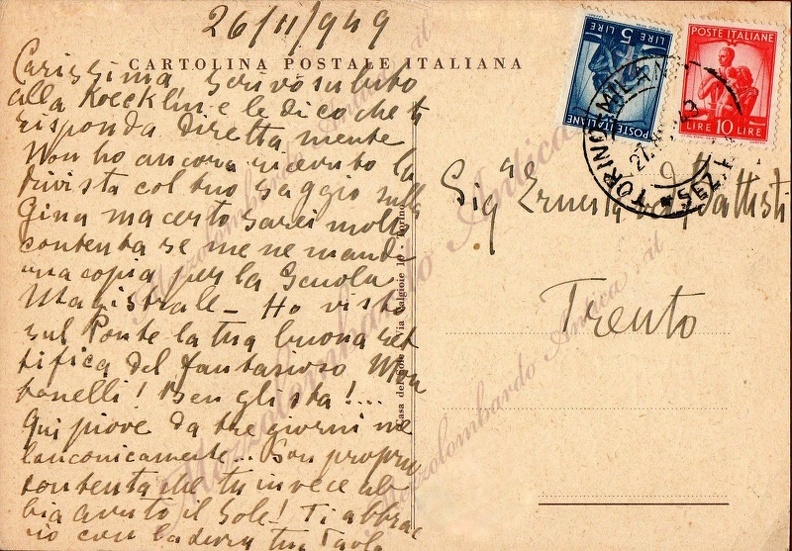 26/11/949
CARTOLINA POSTALE ITALIANA
Carissima scrivo subito
alla Koecklin e le dico che ti
risponda direttamente
Non ho ancora ricevuto la
rivista col tuo saggio sulla
Gina ma certo sarei molto
contenta se me ne mandi
una copia per la Scuola
Magistrale - Ho visto
sul Ponte la tua buona ret
tifica del fantasioso Mon
tanelli! Ben gli sta!...
Qui piove da tre giorni ma
lanconicamente... Son proprio
contenta che tu invece ab
bia avuto il Sole! Ti abbrac
cio con la tua
POSTE ITALIANE
5 LIRE
POSTE ITALIANE
LIRE 10 LIRE
TORINO MILANO
27
SEZ.
Sig.ra Ernesta Battisti
Trento
Casa del Sole - Via Valgioie 10 - Torino
Mezzolombardo Antica .it
Mezzolombardo Antica .it